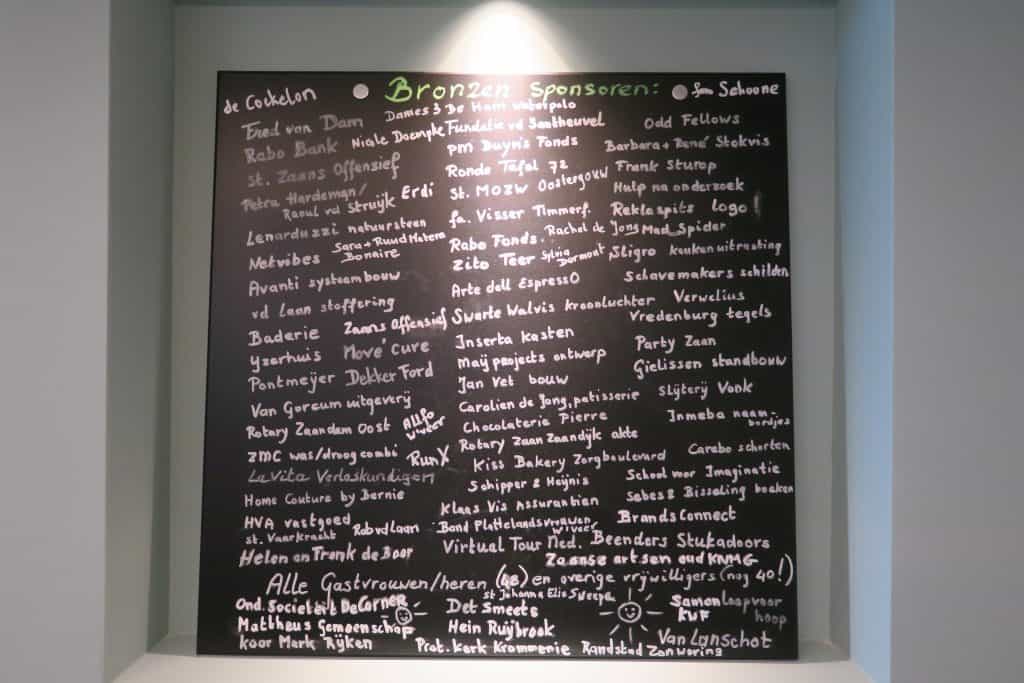 Bronzen Sponsoren:
de Cockelon
Fred van Dam
Rabo Bank
Niale Doempke
St. Zaans Offensief
Petra Hardeman/
Raoul vd Struijk Erdi
Lenarduzzi natuursteen
Netvibes Sara + Ruud Matera
Bonaire
Avanti systeembouw
vd Laan stoffering
Baderie Zaans Offensief
Yzerhuis Move' Cure
Pontmeijer Dekker Ford
Van Gorcum uitgeverij
Rotary Zaandam Oost
ZMC was/droog combi RunX
La Vita Verloskundigen
Home Couture by Bernie
HVA vastgoed
St. Vaarkracht Rob vd Laan
Helen en Frank de Boor
Dames 3 De Ham waterpolo
Fundatie vd Santheuvel
pm Duyvis Fonds
Ronde Tafel 72
St. MOZW Oostergouw
fa. Visser Timmerf.
Rabo Fonds. Rachel de Jong
Zito Teer Sylvia
Dormont
Arte dell EspressO
Swarte Walvis kroonluchter
Inserta kasten
Maij projects ontwerp
Jan Vet bouw
Carolien de Jong, patisserie
Chocolaterie Pierre
Rotary Zaan Zaandijk akte
Kiss Bakery Zorgboulevard
Schipper & Heijnis
Klaas Vis Assurantien
Bond Plattelandsvrouwen
Virtual Tour Ned.
fam Schoone
Odd Fellows
Barbara + René Stokvis
Frank Sturop
Hulp na onderzoek
Reklaspits logo
Mad Spider
Sligro keukenuitrusting
Schavemakers schilden
Verwelius
Vredenburg tegels
Party Zaan
Gielissen standbouw
Slijterij Vonk
Inmeba naam-
bordjes
Carebo schorten
School voor Imaginatie
Sebes & Bisseling boeken
BrandsConnect
Beenders Stukadoors
Zaanse artsen oud KNMG
Alle Gastvrouwen/heren (48) en overige vrijwilligers (nog 40!)
st Johanna Elis Sweepe
Ond. Societeit DeCorner
Mattheus Gemeenschap
koor Mark Rijken
Det Smeets
Hein Ruijbrook
Prot. Kerk Krommenie Randstad Zonwering
Samenloop voor
KWF hoop
Van Lanschot